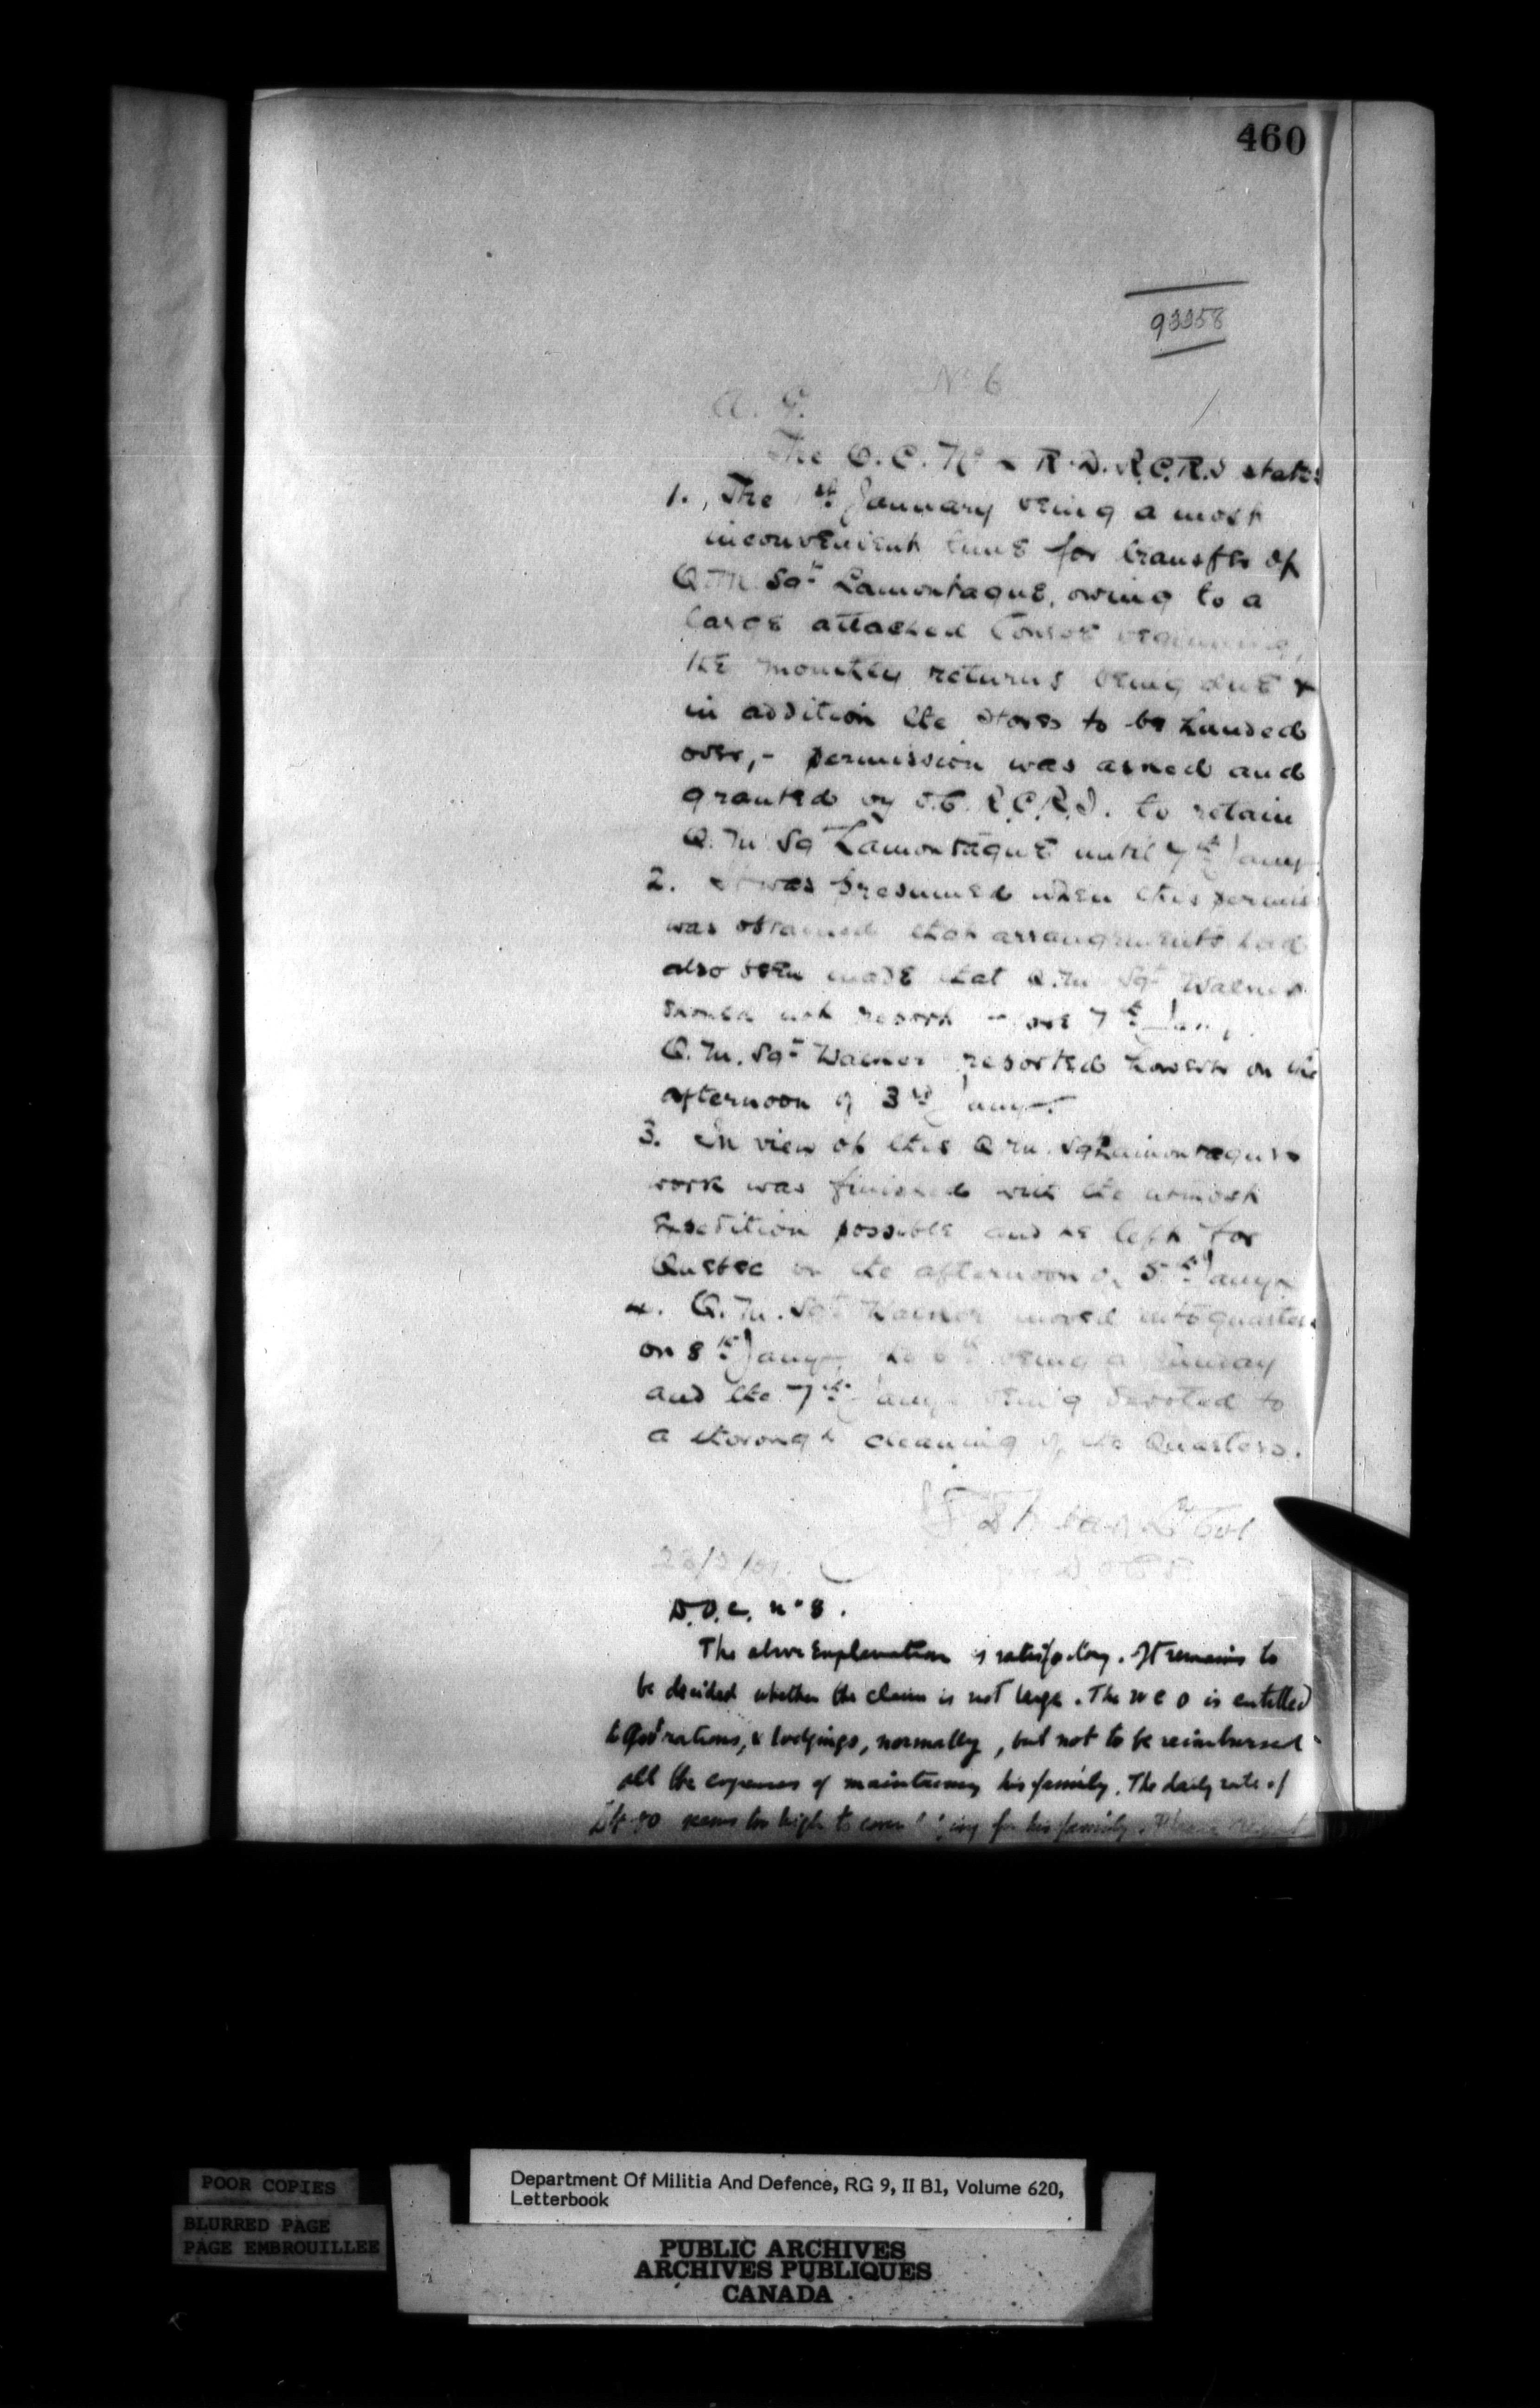 460
93358
No 6
A. G.
The O. C. No R. D. R.C.R.I states
1. The 1st January being a most
inconvenient time for transfer of
Q.M. Sgt Lamontagne, owing to a
large attached Course beginning,
the monthly returns being due &
in addition the stores to be handed
over, - permission was asked and
granted by O.C. R.C.R.I. to retain
Q. M Sg Lamontagne until 7th Jany
2. It was presumed when this permis
was obtained that arrangements had
also been made that Q.M Sgt
should not report 7th Jany.
Q. M. Sgt reported however on the
afternoon of 3rd Jany.
3. In view of this Q M. Sg Lamontagne's
work was finished with the utmost
Expedition possible and he left for
Quebec on the afternoon of 5th Jany
4. Q. M. Sgt moved into quarters
on 8th Jany, the 6th being a Sunday
and the 7th Jany being devoted to
a thorough cleaning of the Quarters.
Lt Col
23/2/01.
D.O.C. No 8.
The above Explanation is satisfactory. It remains to
be decided whether the claim is not large. The N C O is entitled
rations, & lodgings, normally, but not to be reimbursed
all the expenses of maintaining his family. The daily rate of
seems too high to cover for his family.
POOR COPIES
BLURRED PAGE
PAGE EMBROUILLEE
Department Of Militia And Defence, RG 9, II B1, Volume 620,
Letterbook
PUBLIC ARCHIVES
ARCHIVES PUBLIQUES
CANADA